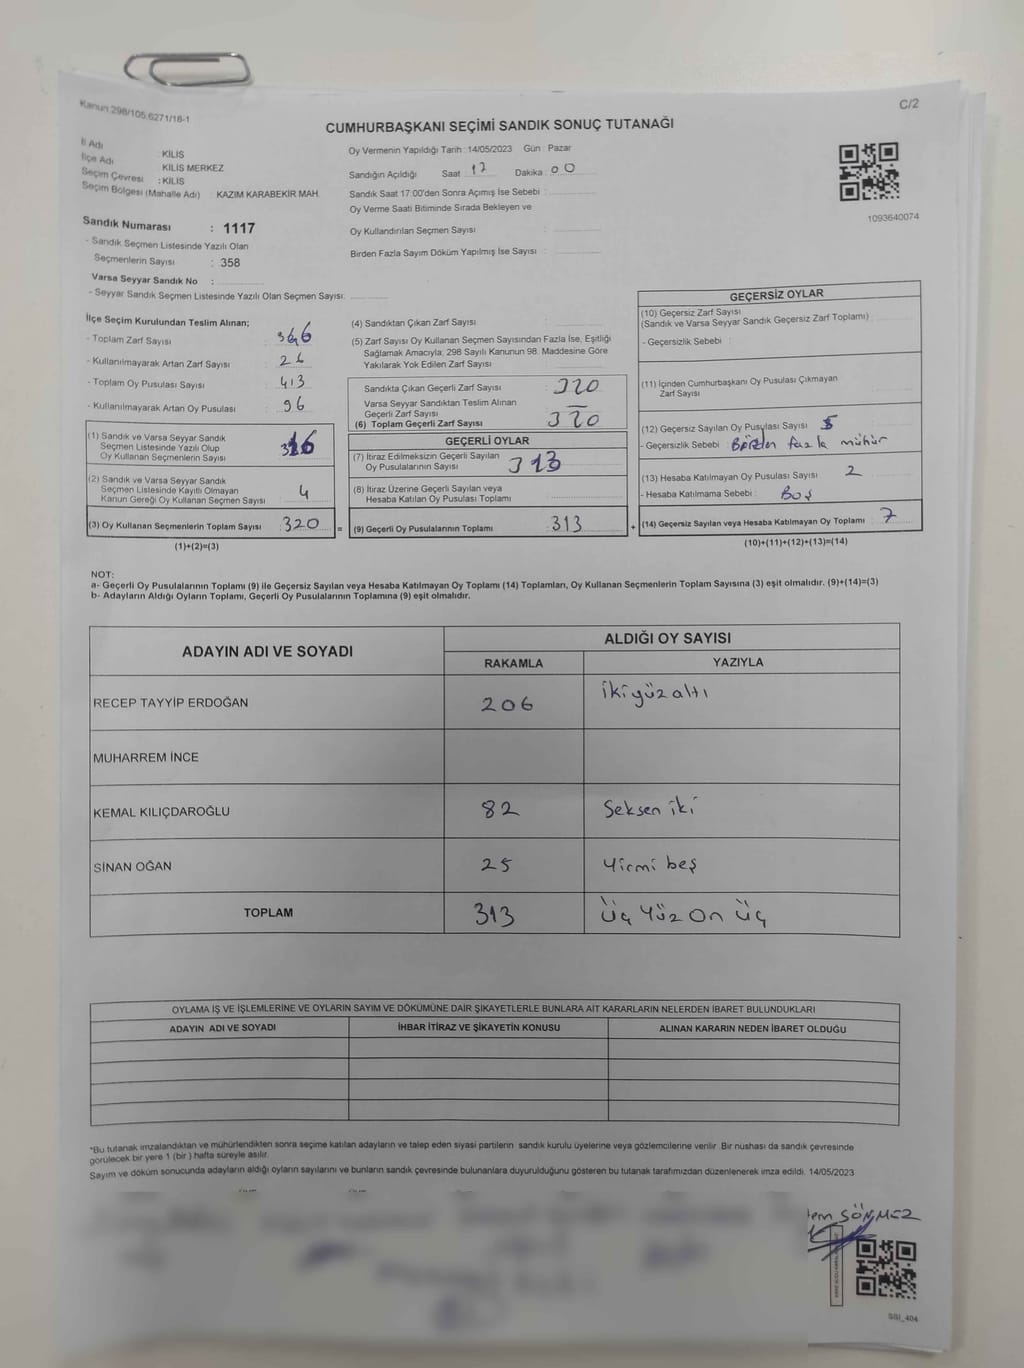 Kanun:298/105,6271/18-1
C/2
CUMHURBAŞKANI SEÇİMİ SANDIK SONUÇ TUTANAĞI
İl Adı : KİLİS
İlçe Adı : KİLİS MERKEZ
Seçim Çevresi : KİLİS
Seçim Bölgesi (Mahalle Adı) KAZIM KARABEKİR MAH.
Oy Vermenin Yapıldığı Tarih : 14/05/2023 Gün : Pazar
Sandığın Açıldığı Saat : 17 Dakika : 00
Sandık Saat 17:00'den Sonra Açımış İse Sebebi :
Oy Verme Saati Bitiminde Sırada Bekleyen ve
Oy Kullandırılan Seçmen Sayısı :
Birden Fazla Sayım Döküm Yapılmış İse Sayısı :
1093640074
Sandık Numarası : 1117
- Sandık Seçmen Listesinde Yazılı Olan
Seçmenlerin Sayısı : 358
Varsa Seyyar Sandık No :
- Seyyar Sandık Seçmen Listesinde Yazılı Olan Seçmen Sayısı:
İlçe Seçim Kurulundan Teslim Alınan;
- Toplam Zarf Sayısı :
- Kullanılmayarak Artan Zarf Sayısı :
- Toplam Oy Pusulası Sayısı : 413
- Kullanılmayarak Artan Oy Pusulası : 96
(1) Sandık ve Varsa Seyyar Sandık
Seçmen Listesinde Yazılı Olup
Oy Kullanan Seçmenlerin Sayısı 316
(2) Sandık ve Varsa Seyyar Sandık
Seçmen Listesinde Kayıtlı Olmayan
Kanun Gereği Oy Kullanan Seçmen Sayısı 4
(3) Oy Kullanan Seçmenlerin Toplam Sayısı 320 =
(1)+(2)=(3)
(4) Sandıktan Çıkan Zarf Sayısı :
(5) Zarf Sayısı Oy Kullanan Seçmen Sayısından Fazla İse, Eşitliği
Sağlamak Amacıyla; 298 Sayılı Kanunun 98. Maddesine Göre
Yakılarak Yok Edilen Zarf Sayısı :
Sandıkta Çıkan Geçerli Zarf Sayısı : 320
Varsa Seyyar Sandıktan Teslim Alınan
Geçerli Zarf Sayısı : —
(6) Toplam Geçerli Zarf Sayısı : 320
GEÇERLİ OYLAR
(7) İtiraz Edilmeksizin Geçerli Sayılan
Oy Pusulalarının Sayısı : 313
(8) İtiraz Üzerine Geçerli Sayılan veya
Hesaba Katılan Oy Pusulası Toplamı :
(9) Geçerli Oy Pusulalarının Toplamı : 313 +
GEÇERSİZ OYLAR
(10) Geçersiz Zarf Sayısı
(Sandık ve Varsa Seyyar Sandık Geçersiz Zarf Toplamı) :
- Geçersizlik Sebebi :
(11) İçinden Cumhurbaşkanı Oy Pusulası Çıkmayan
Zarf Sayısı :
(12) Geçersiz Sayılan Oy Pusulası Sayısı : 5
- Geçersizlik Sebebi : Birden fazla mühür
(13) Hesaba Katılmayan Oy Pusulası Sayısı : 2
- Hesaba Katılmama Sebebi : Boş
(14) Geçersiz Sayılan veya Hesaba Katılmayan Oy Toplamı : 7
(10)+(11)+(12)+(13)=(14)
NOT:
a- Geçerli Oy Pusulalarının Toplamı (9) ile Geçersiz Sayılan veya Hesaba Katılmayan Oy Toplamı (14) Toplamları, Oy Kullanan Seçmenlerin Toplam Sayısına (3) eşit olmalıdır. (9)+(14)=(3)
b- Adayların Aldığı Oyların Toplamı, Geçerli Oy Pusulalarının Toplamına (9) eşit olmalıdır.
ADAYIN ADI VE SOYADI
ALDIĞI OY SAYISI
RAKAMLA YAZIYLA
RECEP TAYYİP ERDOĞAN 206 ikiyüz altı
MUHARREM İNCE
KEMAL KILIÇDAROĞLU 82 Seksen iki
SİNAN OĞAN 25 Yirmi beş
TOPLAM 313 Üç Yüz On üç
OYLAMA İŞ VE İŞLEMLERİNE VE OYLARIN SAYIM VE DÖKÜMÜNE DAİR ŞİKAYETLERLE BUNLARA AİT KARARLARIN NELERDEN İBARET BULUNDUKLARI
ADAYIN ADI VE SOYADI İHBAR İTİRAZ VE ŞİKAYETİN KONUSU ALINAN KARARIN NEDEN İBARET OLDUĞU
*Bu tutanak imzalandıktan ve mühürlendikten sonra seçime katılan adayların ve talep eden siyasi partilerin sandık kurulu üyelerine veya gözlemcilerine verilir. Bir nüshası da sandık çevresinde
görülecek bir yere 1 (bir ) hafta süreyle asılır.
Sayım ve döküm sonucunda adayların aldığı oyların sayılarını ve bunların sandık çevresinde bulunanlara duyurulduğunu gösteren bu tutanak tarafımızdan düzenlenerek imza edildi. 14/05/2023
SÖNMEZ
SSI_404